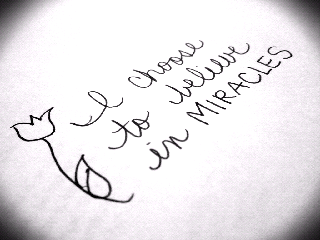 I choose
to believe
in MIRACLES